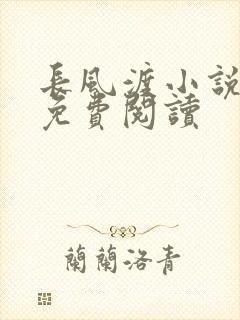 長風渡小說
免費閱讀
蘭蘭洛青